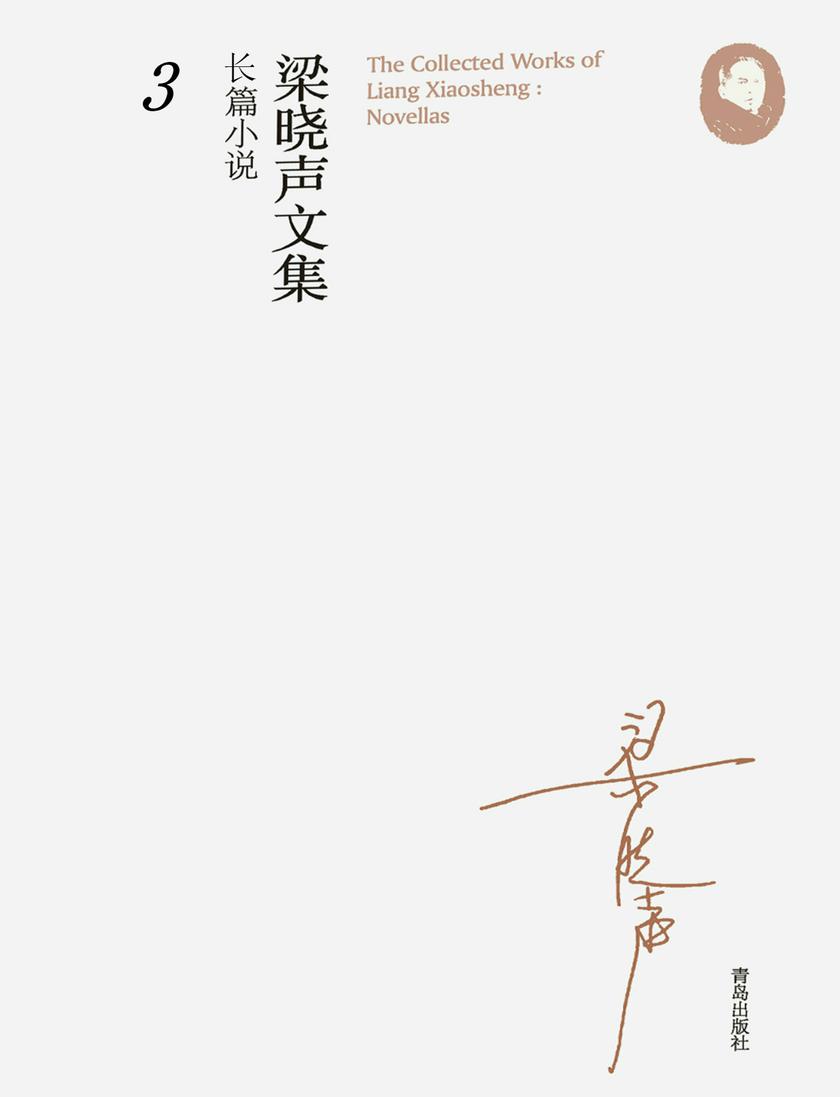 3
长篇小说
梁晓声文集
The Collected Works of
Liang Xiaosheng :
Novellas
梁晓声
青岛出版社